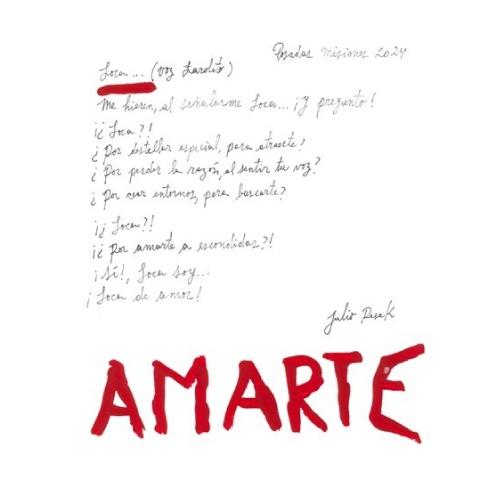 Posadas Misiones 2024
Loca... (voz Larolito)
Me hieren, al señalarme Loca... ¡Y pregunto!
¡¿Loca?!
¿Por destellar especial, para atraerte?
¿Por perder la razón, al sentir tu voz?
¿Por crear entornos, para buscarte?
¡¿Loca?!
¡¿Por amarte a escondidas?!
¡Sí!, Loca soy...
¡Loca de amor!
Julio
AMARTE